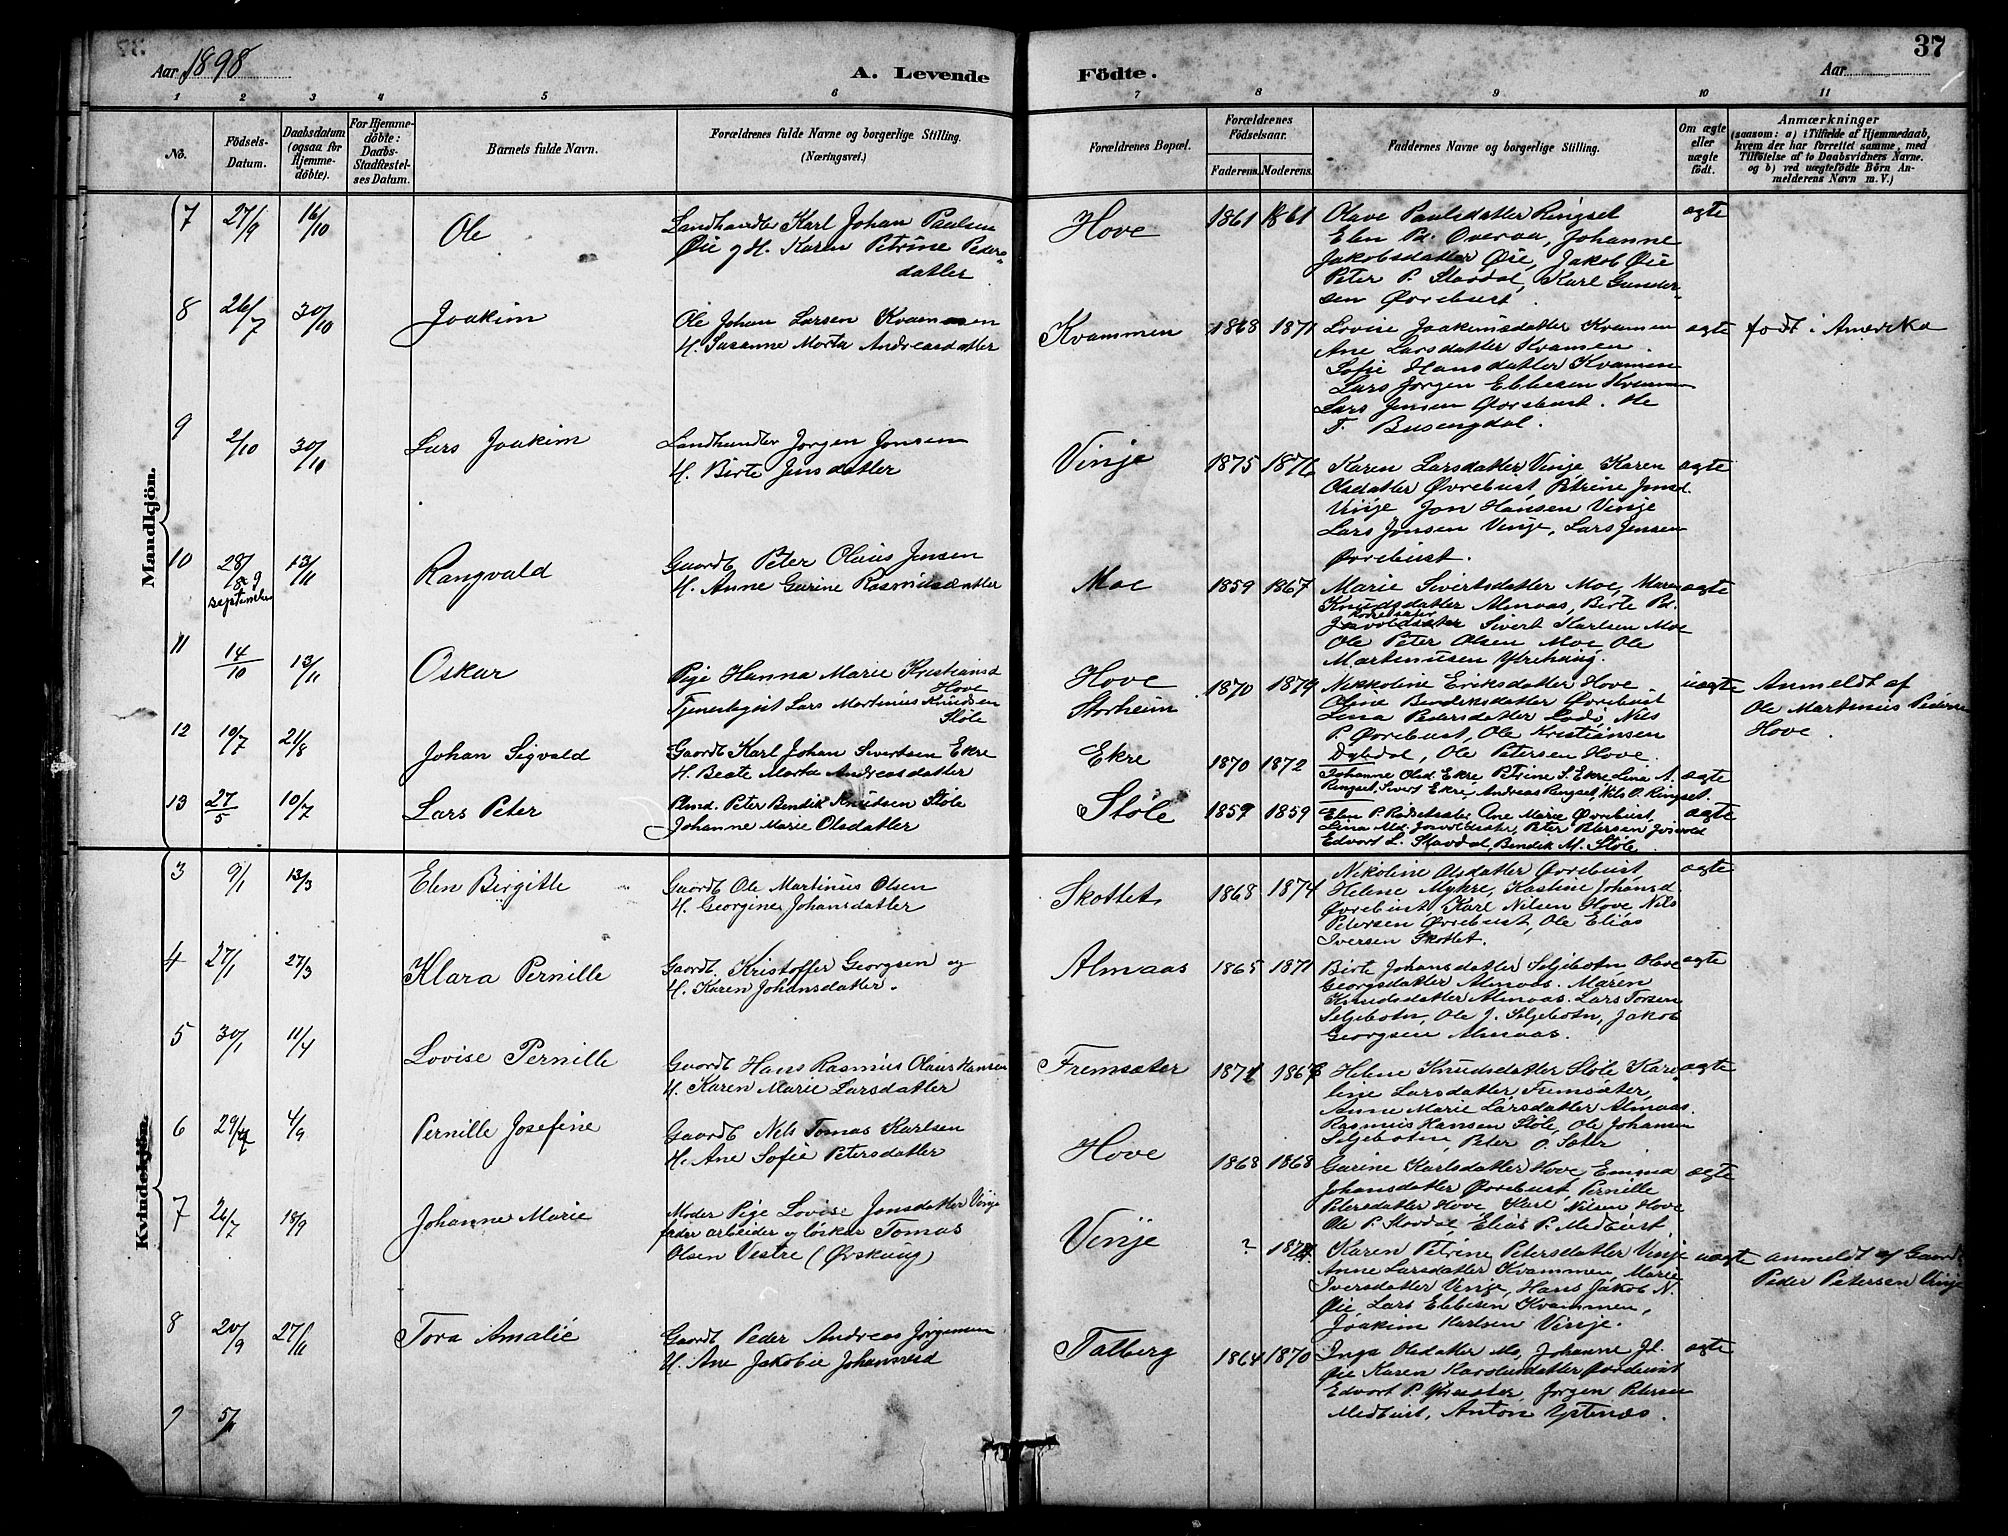 37
Aar 1898
A. Levende
Födte.
Aar
1 2 3 4 5 6 7 8 9 10 11
No.
Födsels-
Datum.
Daabsdatum
(ogsaa for
Hjemme-
döbte).
For Hjemme-
döbte:
Daabs-
Stadfæstel-
ses Datum.
Barnets fulde Navn.
Forældrenes fulde Navne og borgerlige Stilling.
(Næringsvei.)
Forældrenes Bopæl.
Forældrenes
Födselsaar.
Faderens. Moderens.
Faddernes Navne og borgerlige Stilling.
Om ægte
eller
uægte
födt.
Anmærkninger
(saasom: a) i Tilfælde af Hjemmedaab,
hvem der har forrettet samme, med
Tilföielse af to Daabsvidners Navne.
og b) ved uægtefödte Börn An-
melderens Navn m. V.)
Mandkjön.
7 27/9 16/10 Ole
Landhandler Karl Johan Paulsen
Øie og H. Karen Petrine Peders-
datter
Hove 1861 1861
Olave Paulsdatter Ringset
Elen Pd. Overaa, Johanne
Jakobsdatter Øie, Jakob Øie
Peter P. Stavdal, Karl Gunder-
sen Øvrebust.
ægte
8 26/7 30/10 Joakim
Ole Johan Larsen Kvammen
H. Susanne Marta Andreasdatter
Kvammen 1868 1871
Lovise Joakimsdatter Kvamen
Ane Larsdatter Kvamen.
Sofie Hansdatter Kvamen
Lars Jørgen Ebbesen Kvamen
Lars Jensen Øvrebust. Ole
T. Busengdal.
ægte født i Amerika
9 2/10 30/10 Lars Joakim
Landhandler Jørgen Jonsen
H. Birte Jensdatter
Vinje 1875 1876
Karen Larsdatter Vinje Karen
Olsdatter Øvrebust, Petrine Jonsd.
Vinje Jon Hansen Vinje
Lars Jonsen Vinje, Lars Jensen
Øvrebust.
ægte
10 28/9 13/11 Rangvald
september
Gaardb Peter Olaus Jensen
H. Anne Gurine Rasmusdatter
Moe 1859 1867
Marie Sivertsdatter Moe, Maren
Knudsdatter Almaas, Birte Pd.
Sivert Karlsen Moe
Ole Peter Olsen Moe, Ole
Martinusen Ytrehaug.
ægte
11 14/10 13/11 Oskar
Pige Hanna Marie Kristiansd
Hove
Tjenestegut Lars Martinus Knudsen
Støle
Hove
Storheim
1870 1879
Nikkoline Eriksdatter Hove
Oline Bendiksdatter Øvrebust
Lina Pedersdatter Nils
P. Øvrebust, Ole Kristiansen
Dybdal, Ole Petersen Hove.
uægte
Anmeldt af
Ole Martinus Pedersen
Hove.
12 10/7 21/8 Johan Sigvald
Gaardb Karl Johan Sivertsen Ekre
H. Beate Marta Andreasdatter
Ekre 1870 1872
Johanne Olsd. Ekre, Petrine S. Ekre, Lina A.
Ringset, Sivert Ekre, Andreas Ringset, Nils O. Ringset.
ægte
13 27/5 10/7 Lars Peter
Pland. Peter Bendik Knudsen Støle
Johanne Marie Olsdatter
Støle 1857 1859
Elen P. Rødsetsæter, Ane Marie Øvrebust,
Lina Md. Peter Petersen
Edvart L. Stavdal, Bendik M. Støle
ægte
Kvindekjön.
3 9/1 13/3 Elen Birgitte
Gaardb Ole Martinus Olsen
H. Georgine Johansdatter
Skottet 1868 1874
Nikoline Olsdatter Øvrebust,
Helene Myhre, Kastine Johansd.
Øvrebust Karl Nilsen Hove Nils
Petersen Øvrebust, Ole Elias
Iversen Skottet.
ægte
4 27/1 27/3 Klara Pernille
Gaardb. Kristoffer Georgsen og
H. Karen Johansdatter.
Almaas 1865 1871
Birte Johansdatter Seljebotn Olave
Georgsdatter Almaas. Maren
Knudsdatter Almaas. Lars Torsen
Seljebotn, Ole J. Seljebotn, Jakob
Georgsen Almaas.
ægte
5 30/1 11/4 Lovise Pernille
Gaardb Hans Rasmus Olaus Hansen
H. Karen Marie Larsdatter
Fremsæter 1871
Helene Knudsdatter Støle Karo-
line Larsdatter Fremsæter,
Anne Marie Larsdatter Almaas.
Rasmus Hansen Støle, Ole Johansen
Seljebotten, Peter O. Sætr
ægte
6 4/9 Pernille Josefine
Gaardb Nils Tomas Karlsen
H. Ane Sofie Petersdatter
Hove 1868 1868
Gurine Karlsdatter Hove, Emma
Johansdatter Øvrebust, Pernille
Petersdatter Hove Karl Nilsen Hove
Ole P. Stavdal, Elias P. Medbust
ægte
7 26/7 18/9 Johanne Marie
Moder Pige Lovise Jonsdatter Vinje
fader arbeider og løskar Tomas
Olsen Vestre (Ørskaug)
Vinje ?
Karen Petrine Petersdatter Vinje
Anne Larsdatter Kvammen, Marie
Iversdatter Vinje, Hans Jakob N.
Øie, Lars Ebbesen Kvammen,
Joakim Karlsen Vinje.
uægte
anmeldt af Gaardb.
Peder Petersen Vinje
8 20/9 27/11 Tora Amalie
Gaardb Peder Andreas Jørgensen
H. Ane Jakobie Johannesd
Talberg 1864 1870
Inga Olsdatter Mo, Johanne Jl.
Øie Karen Karolusdatter Øvrebust
Edvart P. Jørgen Petersen
Medbust, Anton Ystenæs.
ægte
9